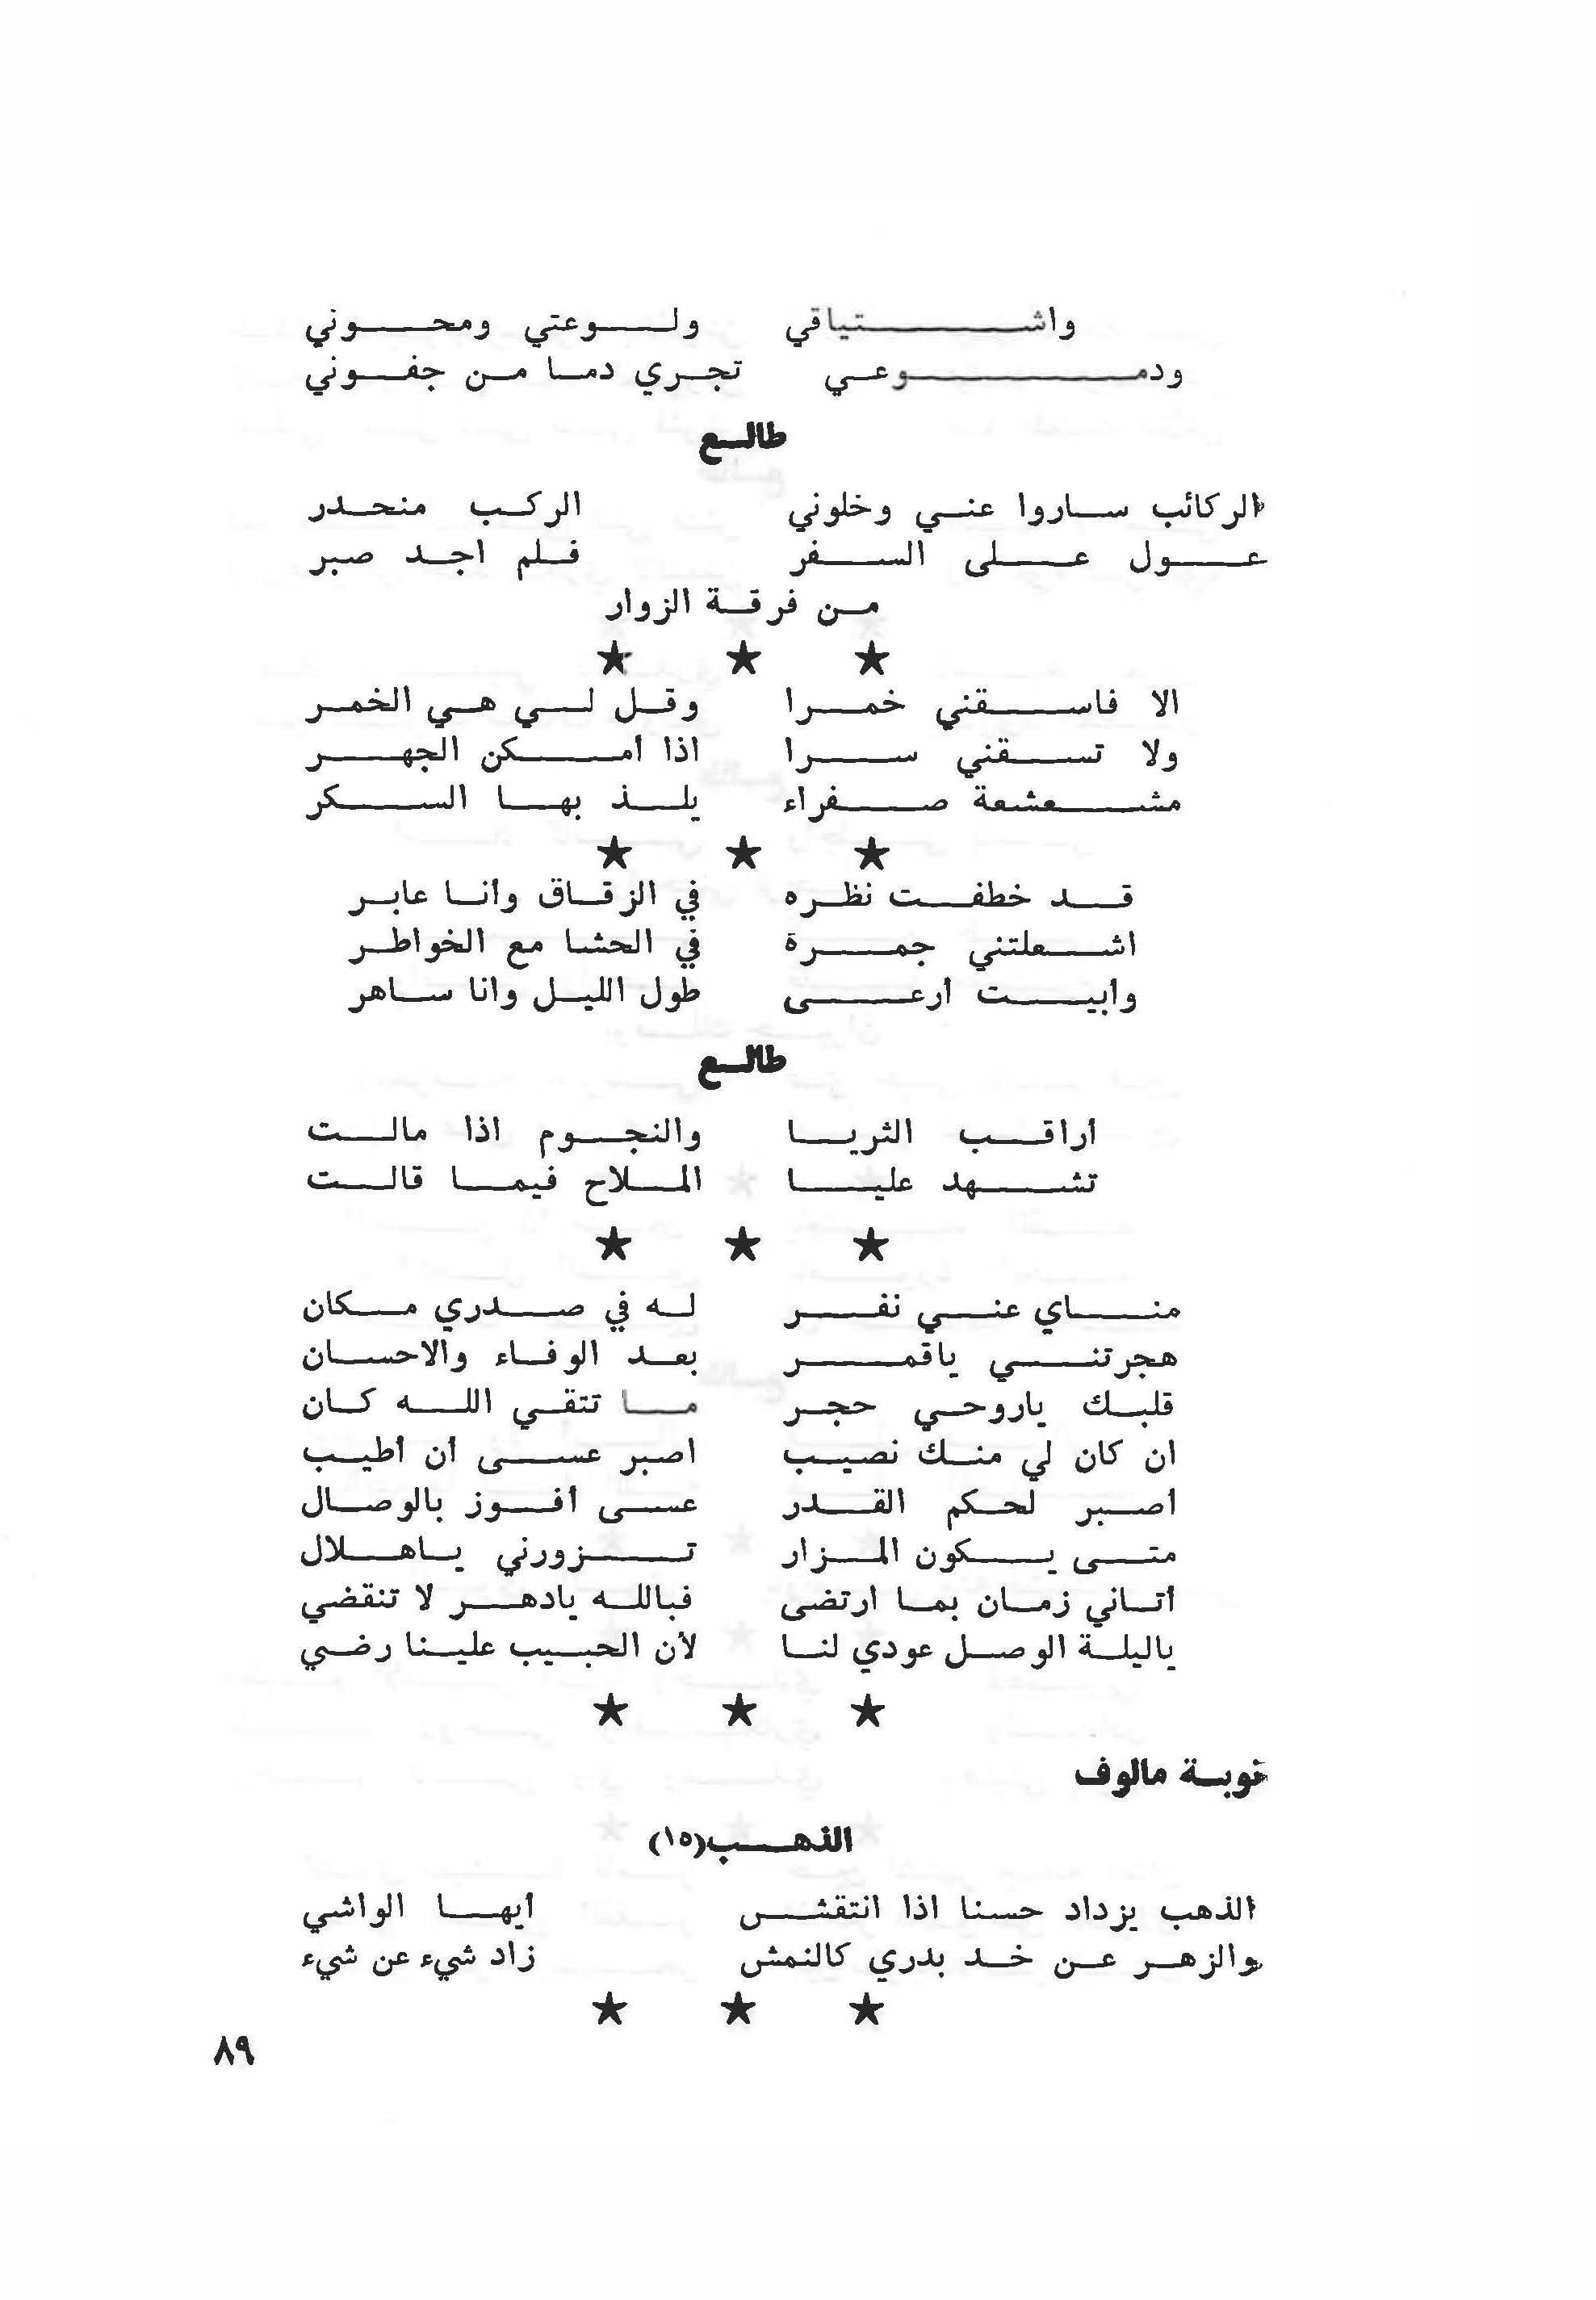 واشتياقي ولوعتي ومحوني
ودموعي تجري دما من جفوني
طالع
الركائب ساروا عني وخلوني الركب منحدر
عول على السفر فلم اجد صبر
من فرقة الزوار
★ ★ ★
الا فاسقني خمرا وقل لي هي الخمر
ولا تسقني سرا اذا أمكن الجهر
مشعشعة صفراء يلذ بها السكر
★ ★ ★
قد خطفت نظره في الزقاق وأنا عابر
اشعلتني جمرة في الحشا مع الخواطر
وأبيت أرعى طول الليل وأنا ساهر
طالع
أراقب الثريا والنجوم اذا مالت
تشهد عليا الملاح فيما قالت
★ ★ ★
مناي عني نفر له في صدري مكان
هجرتني ياقمر بعد الوفاء والاحسان
قلبك ياروحي حجر ما تتقي الله كان
ان كان لي منك نصيب اصبر عسى أن أطيب
أصبر لحكم القدر عسى أفوز بالوصال
متى يكون المزار تزورني ياهلال
أتاني زمان بما ارتضى فبالله يادهر لا تنقضي
ياليلة الوصل عودي لنا لأن الحبيب علينا رضي
★ ★ ★
نوبة مالوف
الذهب(١٥)
الذهب يزداد حسنا اذا انتقش أيها الواشي
والزهر عن خد بدري كالنمش زاد شيء عن شيء
★ ★ ★
٨٩